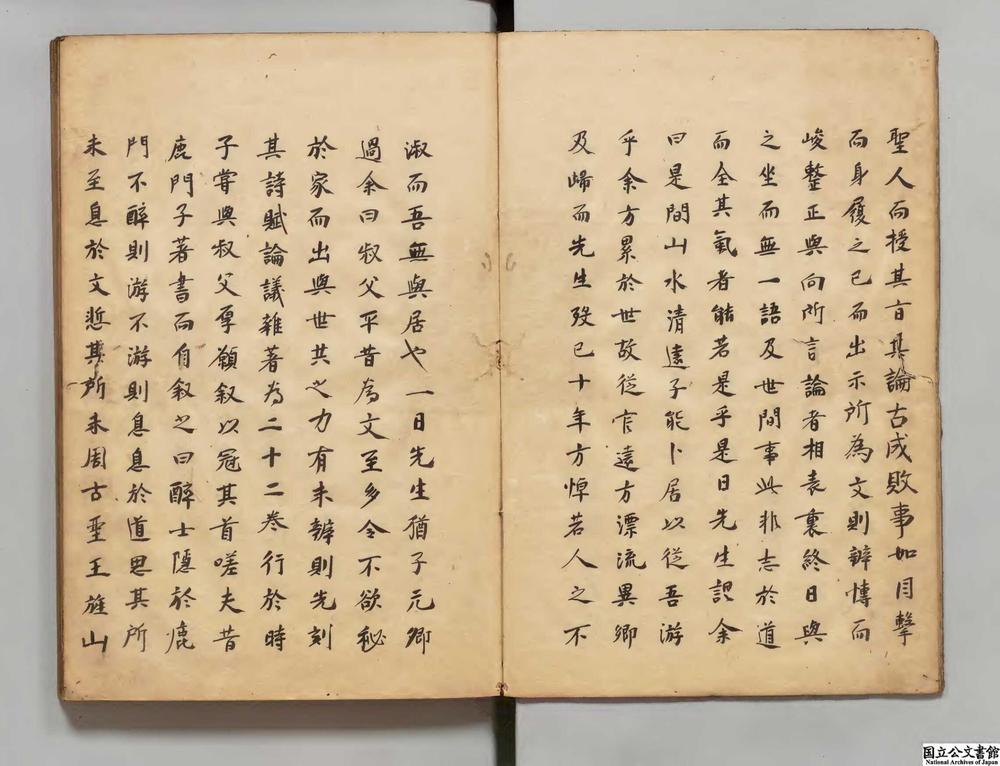 聖人而授其言其論古成敗事如目擊
而身履之已而出示所為文則辨慱而
峻整正與向所言論者相表裏終日與
之坐而無一語及世間事此非志於道
而全其氣者能若是乎是日先生謂余
曰是間山水清遠子能卜居以從吾游
乎余方累於世故從官遠方漂流異鄉
及歸而先生歿已十年方悼若人之不
淑而吾無與居也一日先生猶子元卿
過余曰叔父平昔為文至多令不欲秘
於家而出與世共之力有未辦則先刻
其詩賦論議雜著為二十二卷行於時
子嘗與叔父厚願叙以冠其首嗟夫昔
鹿門子著書而自叙之曰醉士隱於鹿
門不醉則游不游則息息於道思其所
未至息於文慙其所未周古聖王旌山
国立公文書館
National Archives of Japan